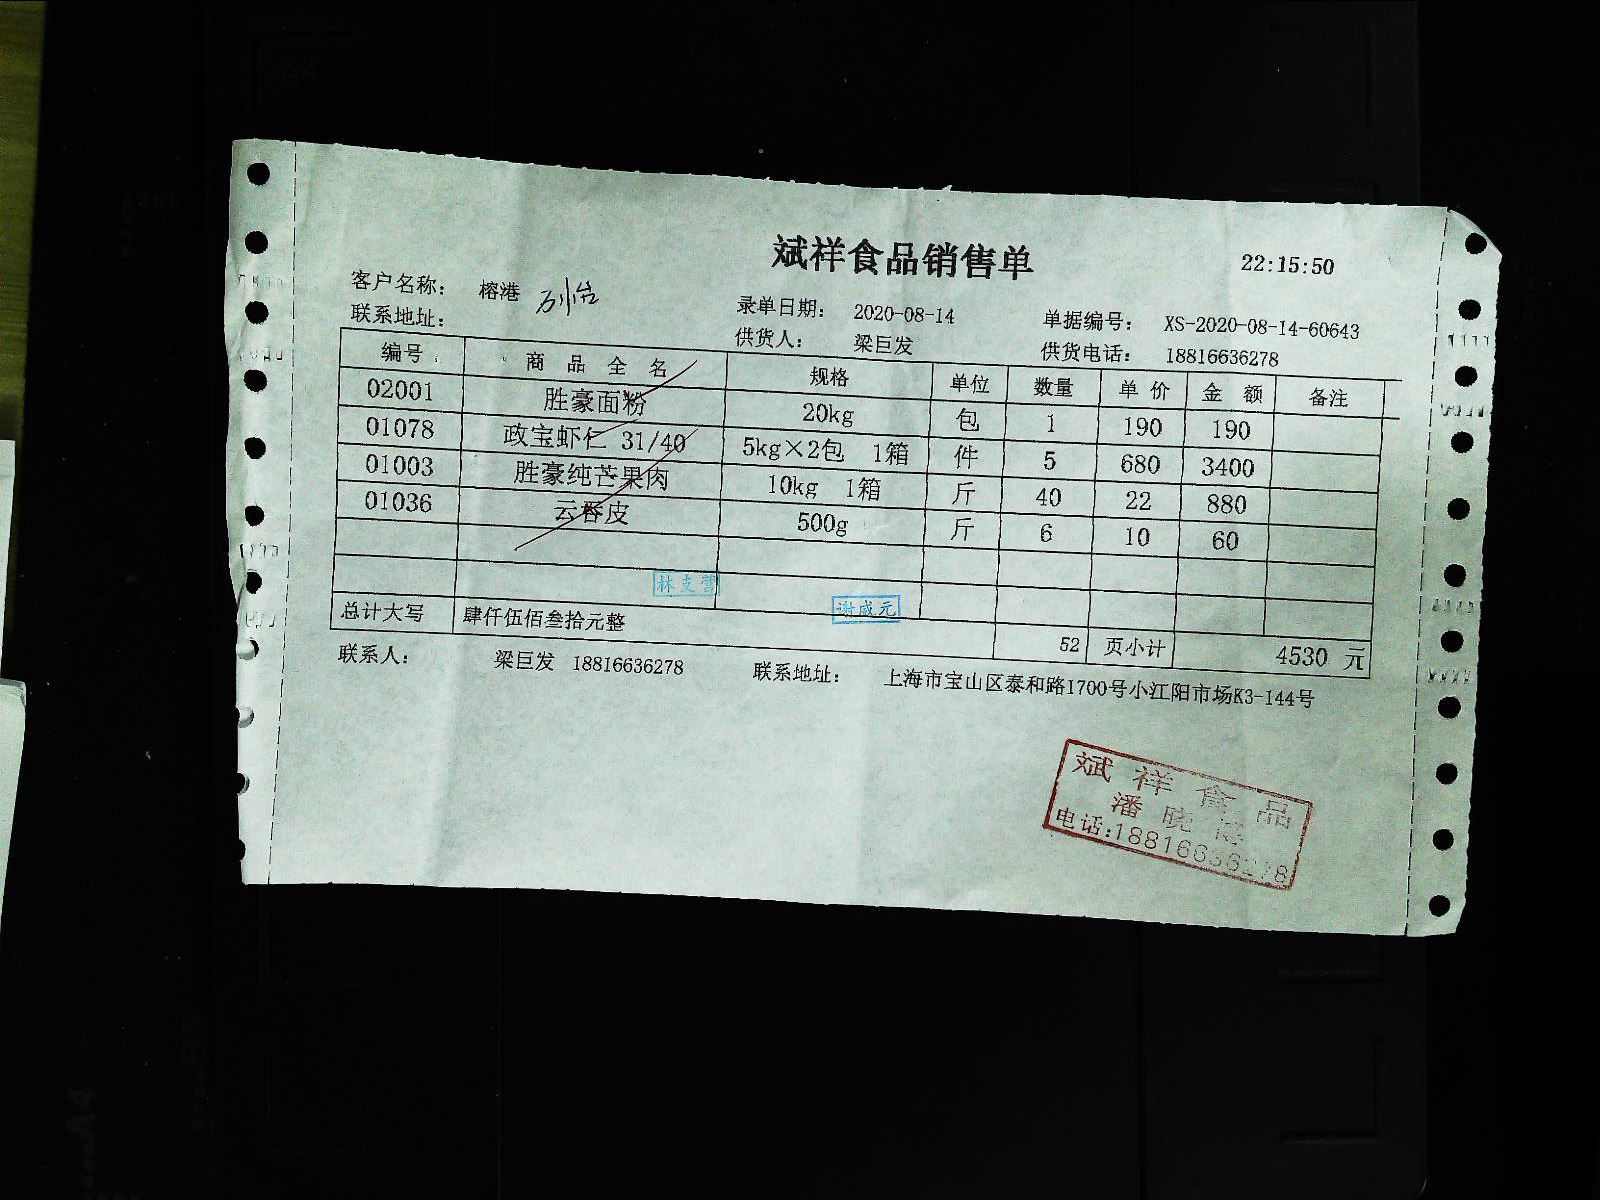 斌祥食品销售单
22:15:50
客户名称: 榕港
录单日期: 2020-08-14 单据编号: XS-2020-08-14-60643
联系地址: 供货人: 梁巨发 供货电话: 18816636278
编号 商品全名 规格 单位 数量 单价 金额 备注
02001 胜豪面粉 20kg 包 1 190 190
01078 政宝虾仁 31/40 5kg×2包 1箱 件 5 680 3400
01003 胜豪纯芒果肉 10kg 1箱 斤 40 22 880
01036 云吞皮 500g 斤 6 10 60
林支营
谢成元
总计大写 肆仟伍佰叁拾元整 52 页小计 4530 元
联系人: 梁巨发 18816636278 联系地址: 上海市宝山区泰和路1700号小江阳市场K3-144号
斌祥食品
潘晓
电话:18816636278